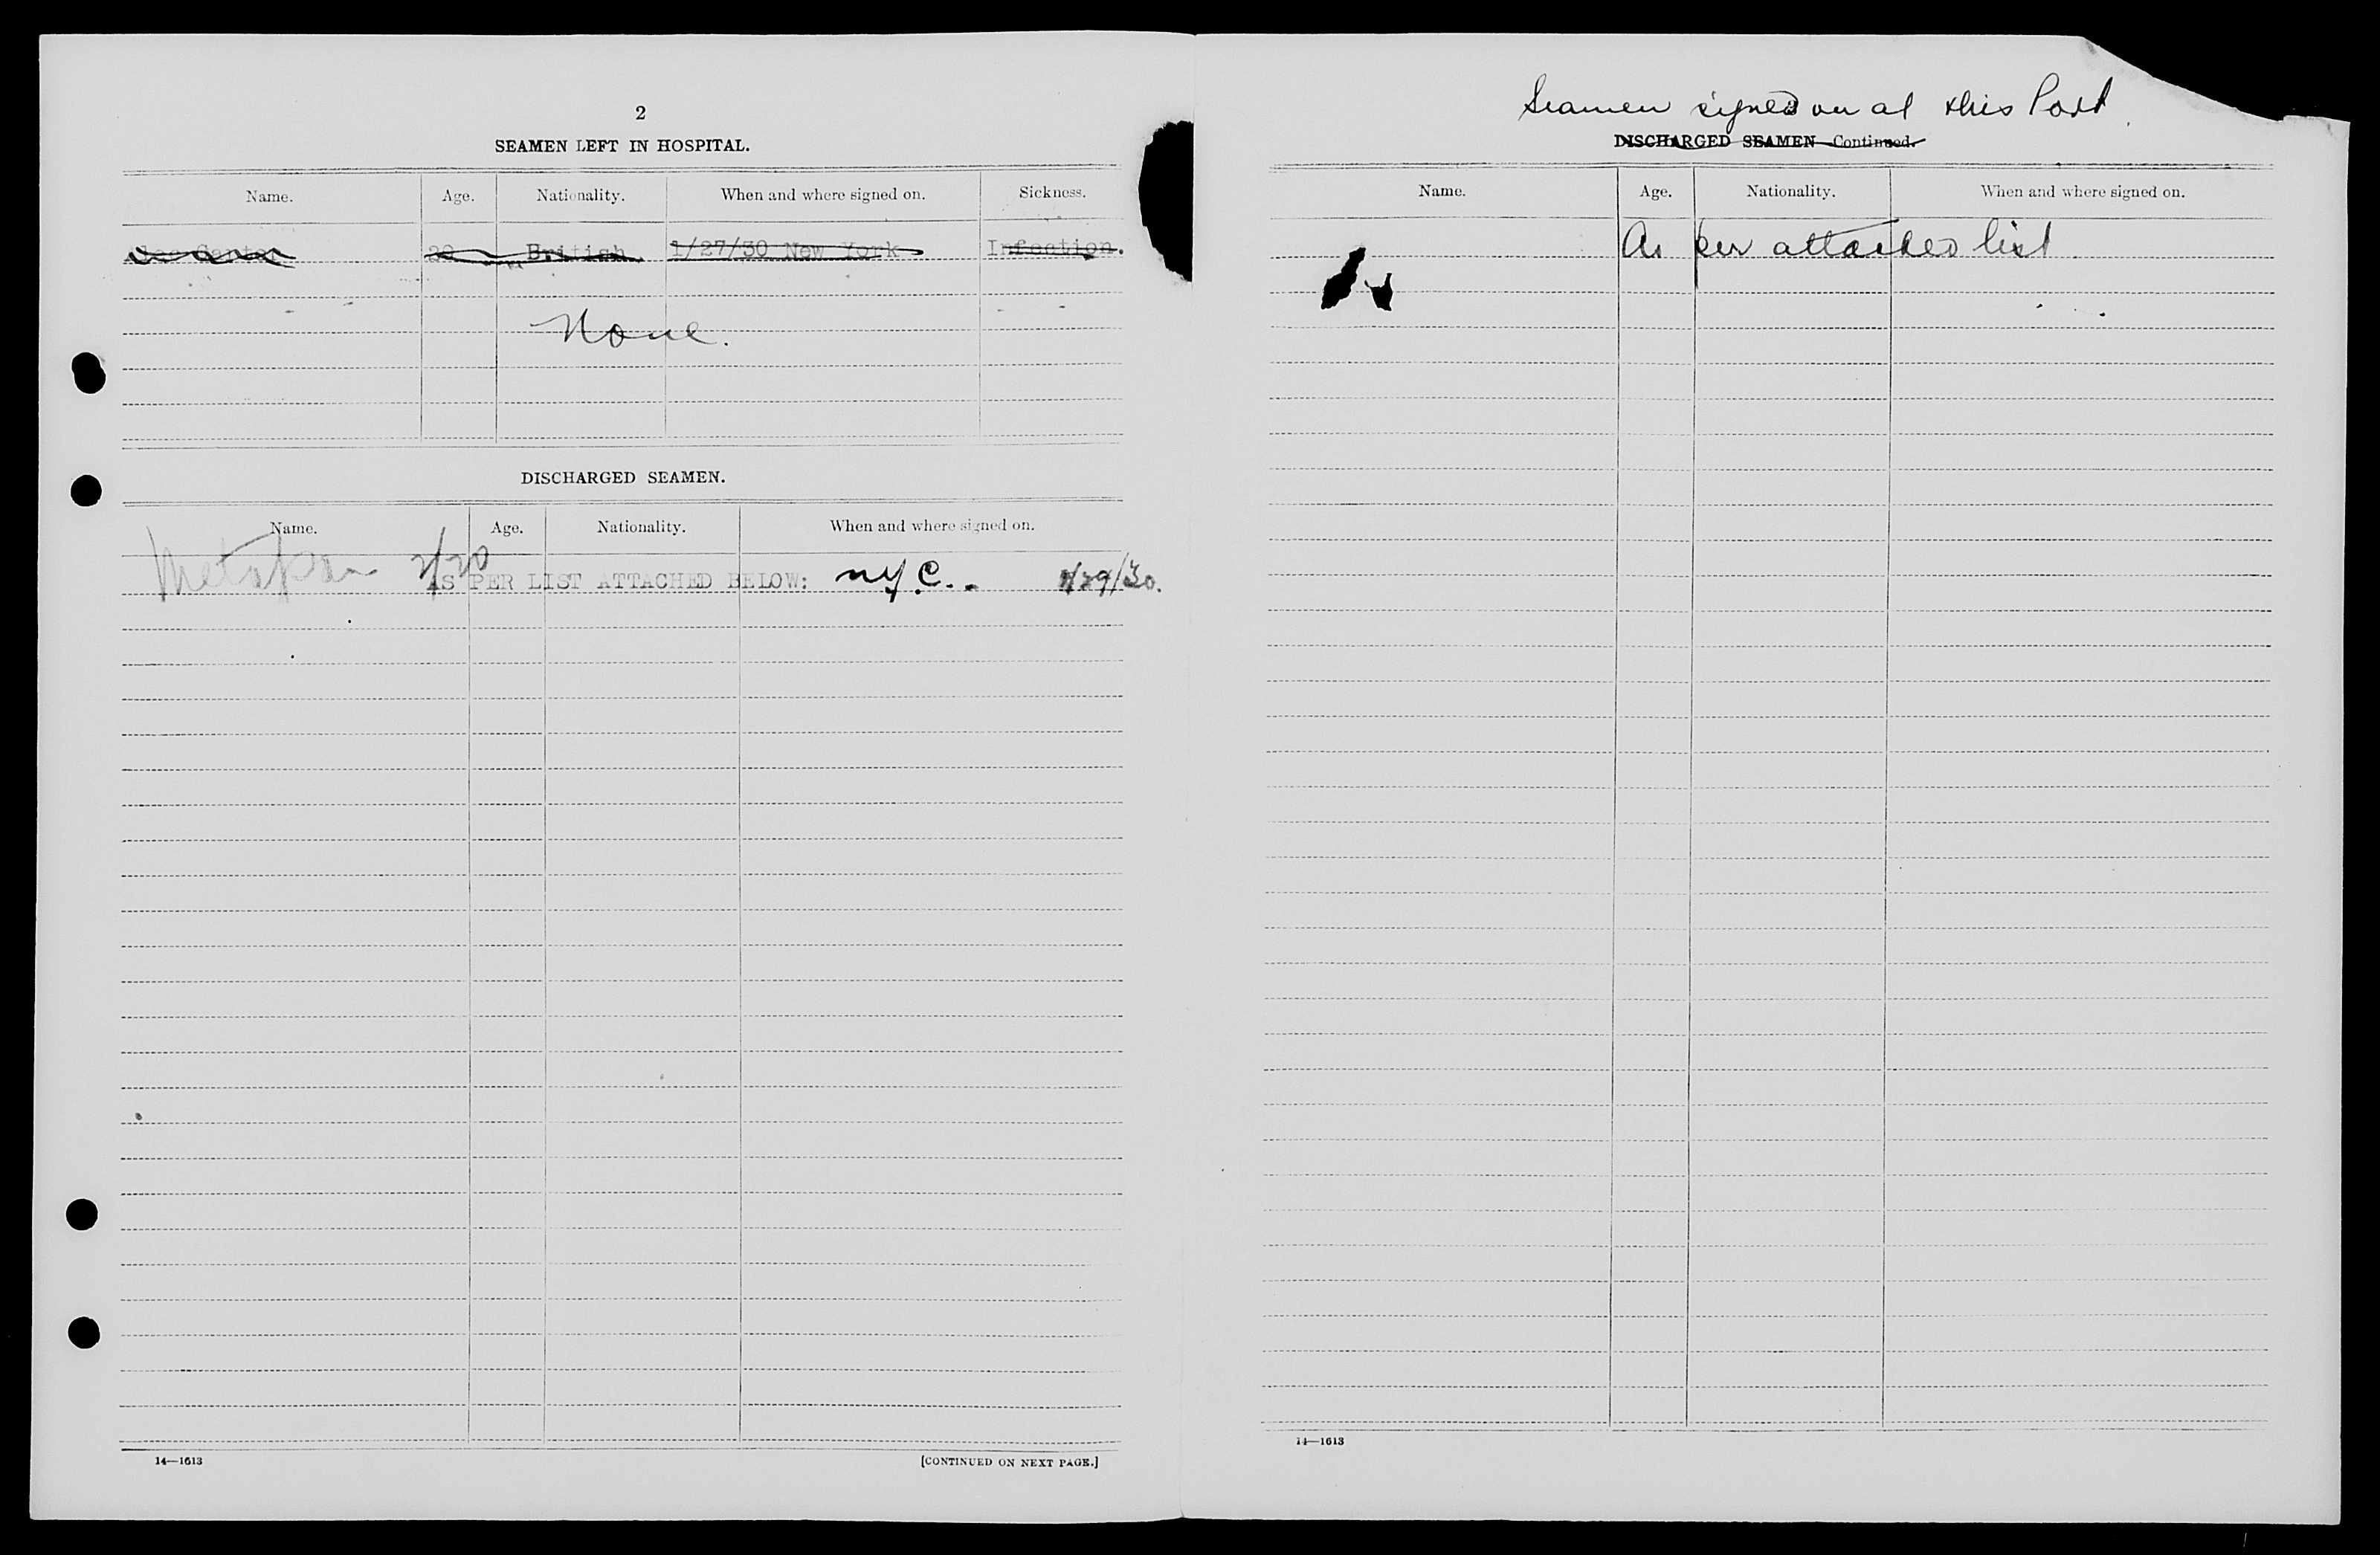 2
SEAMEN LEFT IN HOSPITAL.
Name. Age. Nationality. When and where signed on. Sickness.
British 1/27/30 New York Infection.
None.
DISCHARGED SEAMEN.
Name. Age. Nationality. When and where signed on.
Metapan 2/20
AS PER LIST ATTACHED BELOW: N.Y.C. /29/30.
14—1613 [CONTINUED ON NEXT PAGE.]
Seamen signed on at this Port.
DISCHARGED SEAMEN—Continued.
Name. Age. Nationality. When and where signed on.
As per attached list.
14—1613